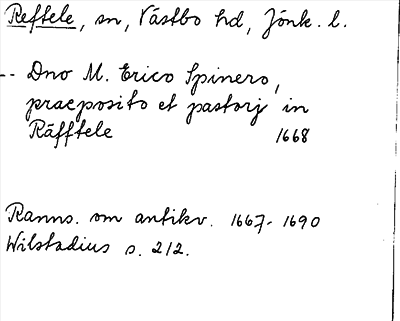 Reftele, sn, Västbo hd, Jönk. l.
-- Dno M. Erico Spinero,
praeposito et pastorj in
Räfftele 1668
Ranns. om antikv. 1667-1690
Wilstadius s. 212.